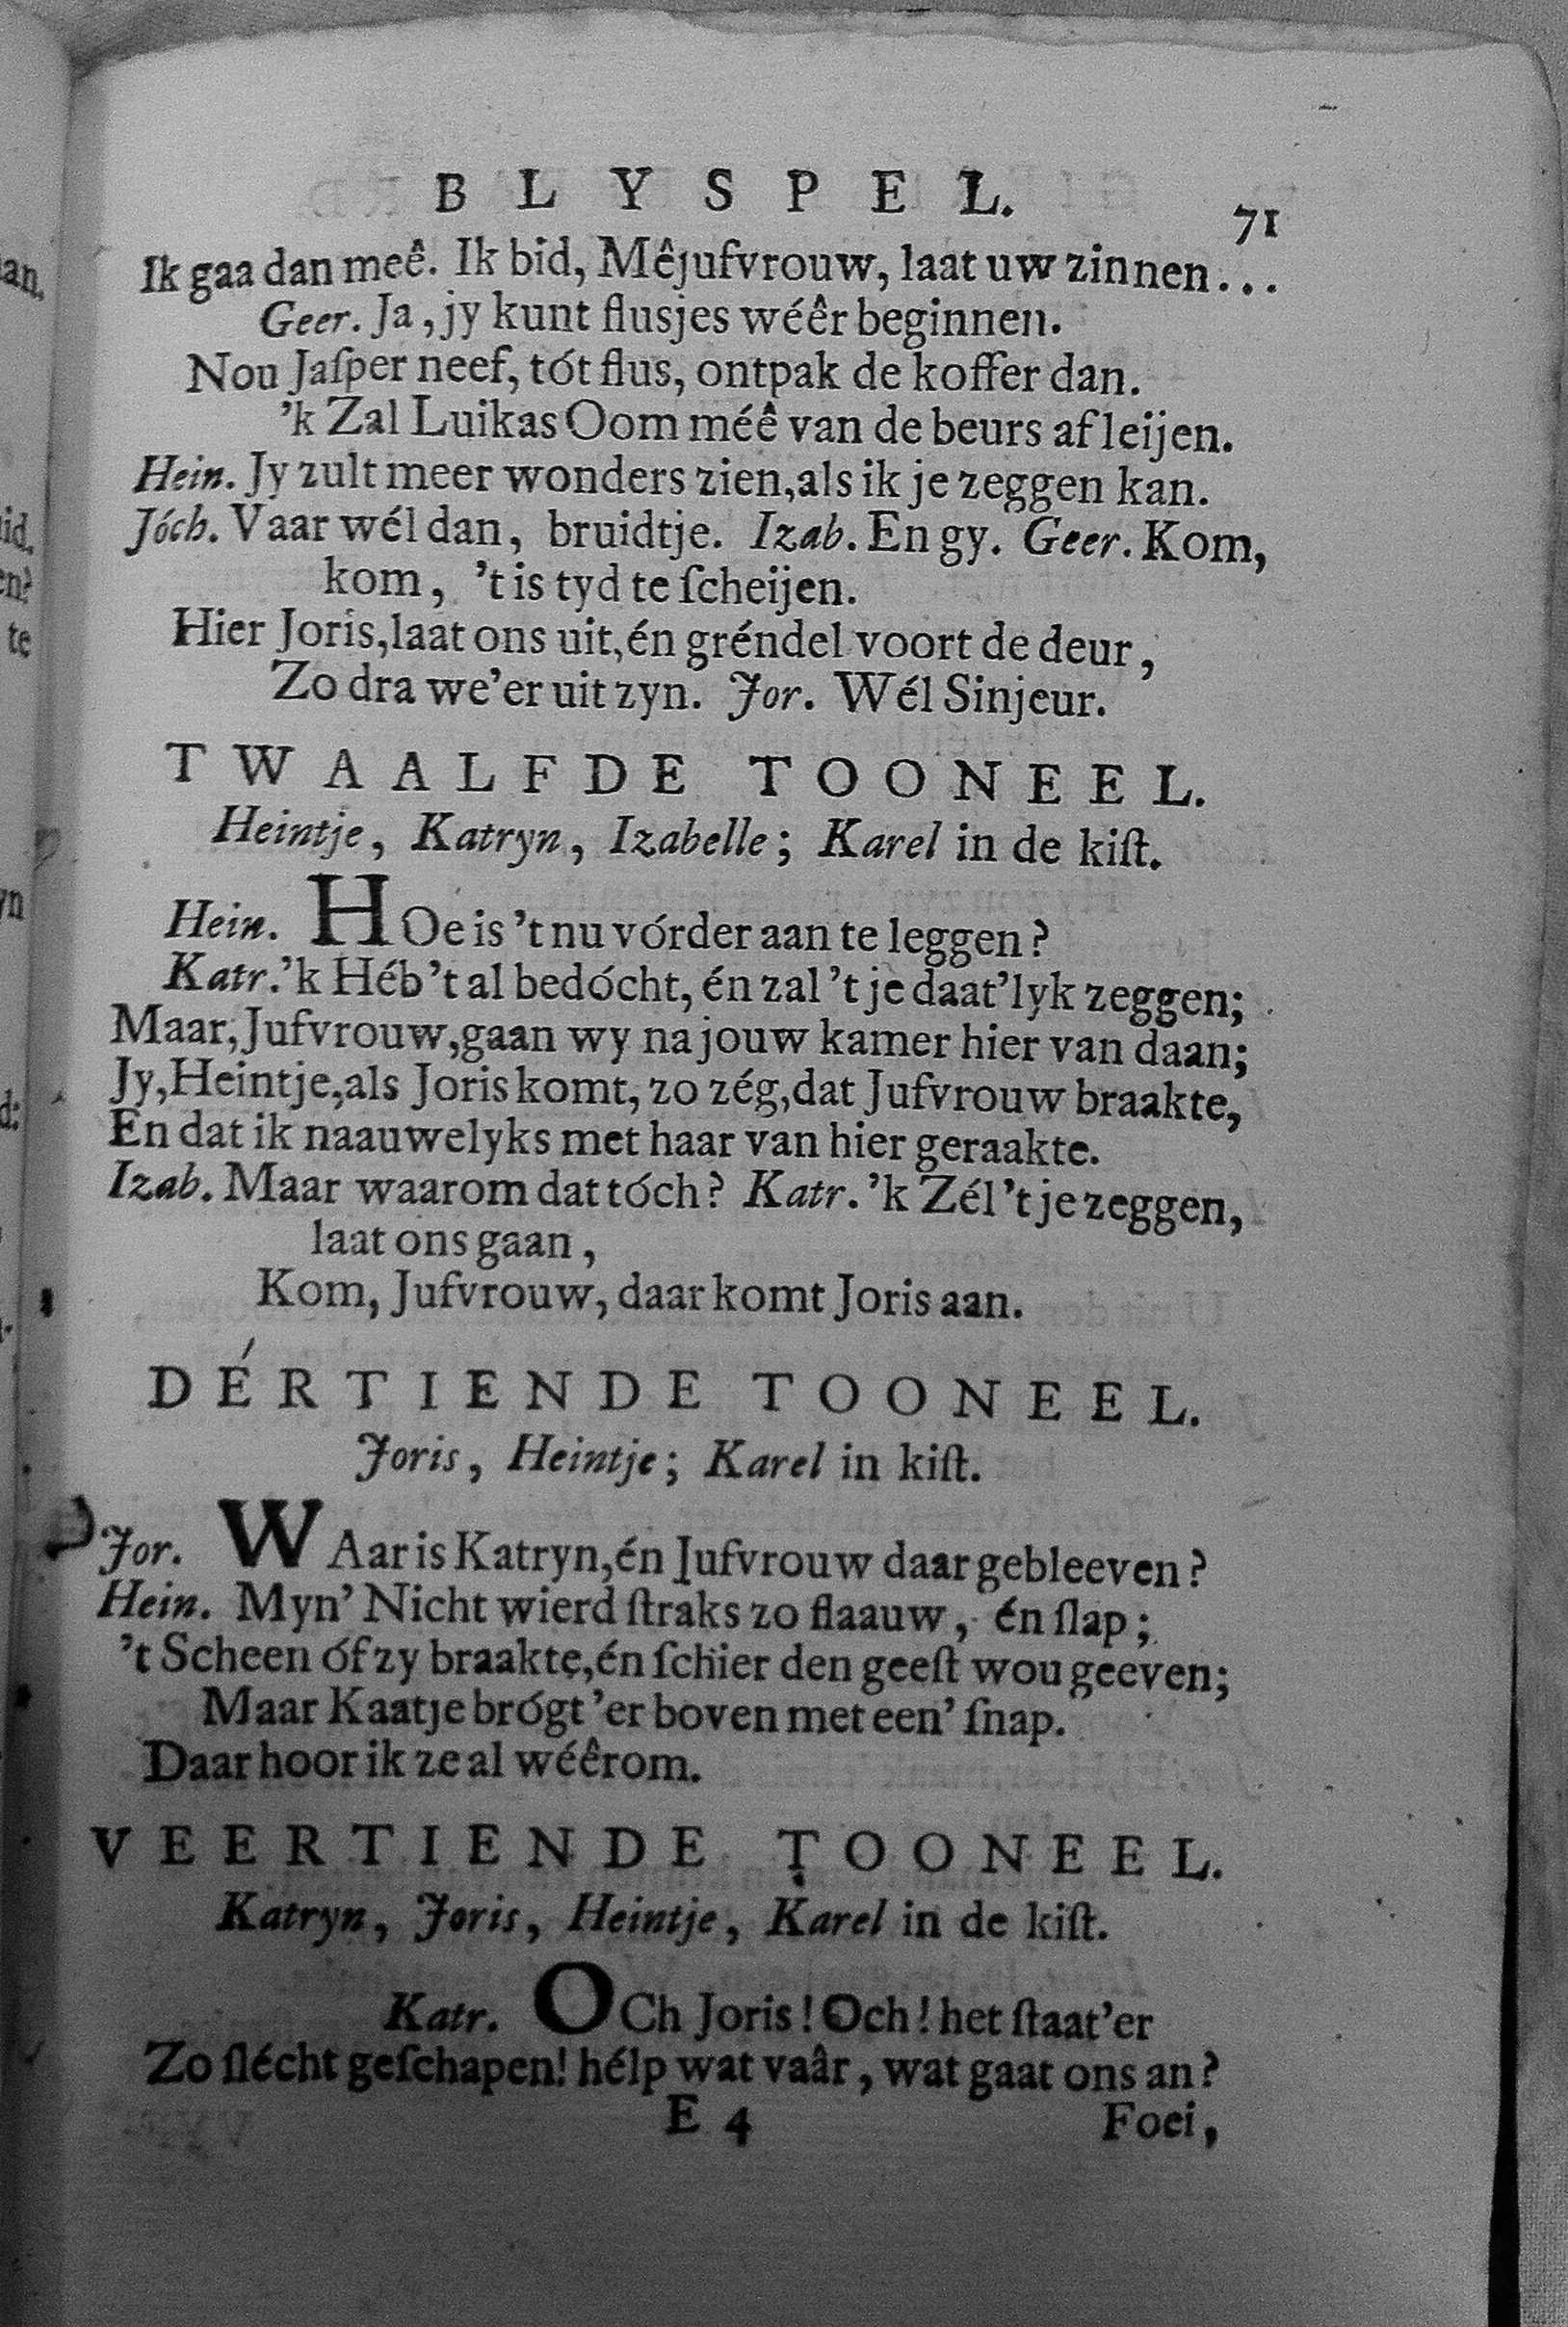 BLYSPEL.
71
Ik gaa dan meê. Ik bid, Mêjufvrouw, laat uw zinnen...
Geer. Ja, jy kunt ſlusjes wéêr beginnen.
Nou Jaſper neef, tót ſlus, ontpak de koffer dan.
'k Zal Luikas Oom méê van de beurs af leijen.
Hein. Jy zult meer wonders zien, als ik je zeggen kan.
Jóch. Vaar wél dan, bruidtje. Izab. En gy. Geer. Kom,
kom, 't is tyd te ſcheijen.
Hier Joris, laat ons uit, én gréndel voort de deur,
Zo dra we'er uit zyn. Jor. Wél Sinjeur.
TWAALFDE TOONEEL.
Heintje, Katryn, Izabelle; Karel in de kiſt.
Hein. HOe is 't nu vórder aan te leggen?
Katr. 'k Héb 't al bedócht, én zal 't je daat'lyk zeggen;
Maar, Jufvrouw, gaan wy na jouw kamer hier van daan;
Jy, Heintje, als Joris komt, zo zég, dat Jufvrouw braakte,
En dat ik naauwelyks met haar van hier geraakte.
Izab. Maar waarom dat tóch? Katr. 'k Zél 't je zeggen,
laat ons gaan,
Kom, Jufvrouw, daar komt Joris aan.
DÉRTIENDE TOONEEL.
Joris, Heintje; Karel in kiſt.
Jor. WAar is Katryn, én Jufvrouw daar gebleeven?
Hein. Myn' Nicht wierd ſtraks zo flaauw, én ſlap;
't Scheen óf zy braakte, én ſchier den geeſt wou geeven;
Maar Kaatje brógt 'er boven met een' ſnap.
Daar hoor ik ze al wéêrom.
VEERTIENDE TOONEEL.
Katryn, Joris, Heintje, Karel in de kiſt.
Katr. OCh Joris! Och! het ſtaat'er
Zo ſlécht geſchapen! hélp wat vaâr, wat gaat ons an?
E 4
Foei,
an.
id.
en?
te
yn
d: